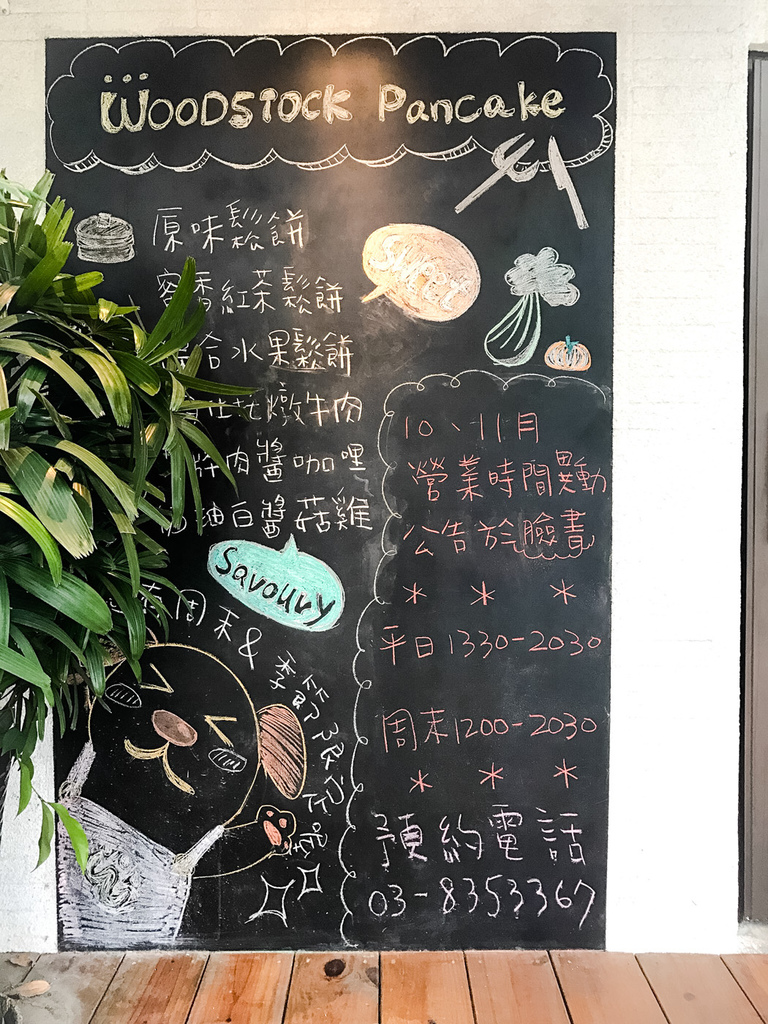 WOODSTOCK Pancake
原味鬆餅
蜜香紅茶鬆餅
Sweet
合水果鬆餅
燉牛肉
肉醬咖哩
油白醬菇雞
Savoury
周末&
季節限定
10、11月
營業時間異動
公告於臉書
* * *
平日1330-2030
周末1200-2030
* * *
預約電話
03-8353367